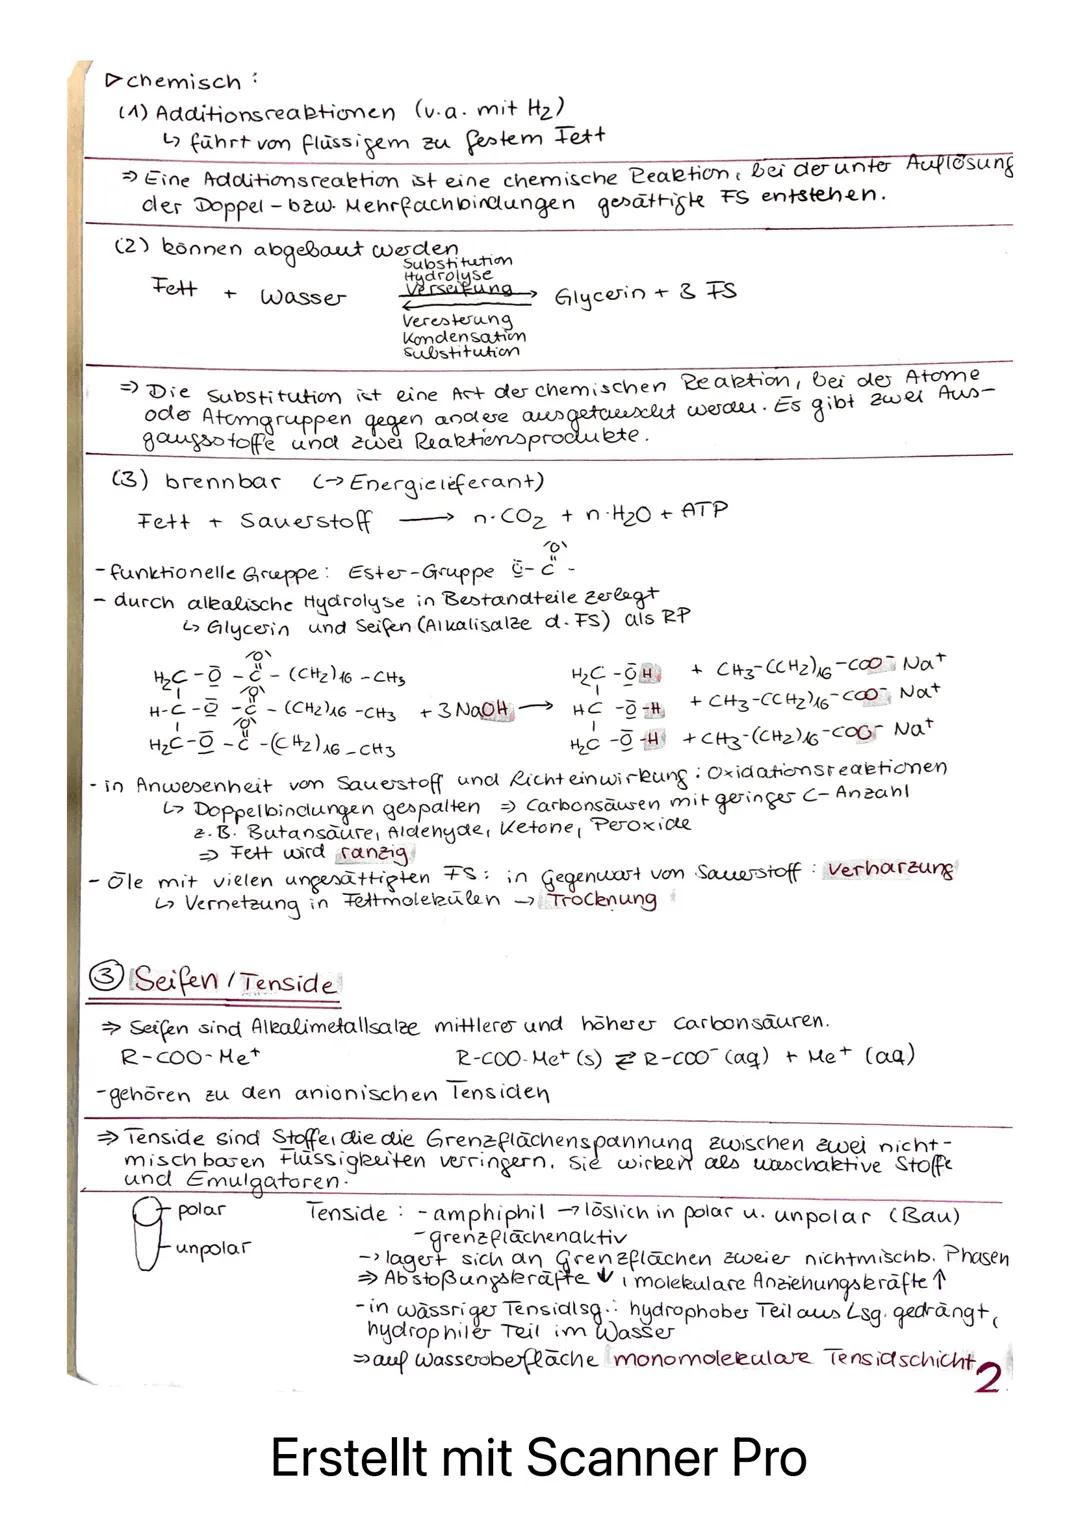 ▷ chemisch :
(1) Additionsreaktionen (v.a. mit H₂)
↳ führt von flüssigem zu festem Fett
⇒ Eine Additionsreaktion ist eine chemische Reaktion, bei der unter Auflösung
der Doppel- bzw. Mehrfachbindungen gesättigte FS entstehen.
(2) können abgebaut werden
Substitution
Hydrolyse
Verseifung
Fett + Wasser ⇌ Glycerin + 3 FS
Veresterung
Kondensation
Substitution
⇒ Die Substitution ist eine Art der chemischen Reaktion, bei der Atome
oder Atomgruppen gegen andere ausgetauscht werden. Es gibt zwei Aus-
gangsstoffe und zwei Reaktionsprodukte.
(3) brennbar (→ Energielieferant)
Fett + Sauerstoff → n·CO₂ + n·H₂O + ATP
- funktionelle Gruppe: Ester-Gruppe O-C(=O)-
- durch alkalische Hydrolyse in Bestandteile zerlegt
↳ Glycerin und Seifen (Alkalisalze d. FS) als RP
H₂C-O-C(=O)-(CH₂)16-CH₃ H₂C-O-H + CH₃-(CH₂)16-COO⁻ Na⁺
H-C-O-C(=O)-(CH₂)16-CH₃ + 3 NaOH → HC-O-H + CH₃-(CH₂)16-COO⁻ Na⁺
H₂C-O-C(=O)-(CH₂)16-CH₃ H₂C-O-H + CH₃-(CH₂)16-COO⁻ Na⁺
- in Anwesenheit von Sauerstoff und Lichteinwirkung: Oxidationsreaktionen
↳ Doppelbindungen gespalten ⇒ Carbonsäuren mit geringer C-Anzahl
z.B. Butansäure, Aldehyde, Ketone, Peroxide
⇒ Fett wird ranzig
- Öle mit vielen ungesättigten FS: in Gegenwart von Sauerstoff: Verharzung
↳ Vernetzung in Fettmolekülen → Trocknung
③ Seifen / Tenside
⇒ Seifen sind Alkalimetallsalze mittlerer und höherer Carbonsäuren.
R-COO-Me⁺ R-COO-Me⁺ (s) ⇌ R-COO⁻ (aq) + Me⁺ (aq)
- gehören zu den anionischen Tensiden
⇒ Tenside sind Stoffe, die die Grenzflächenspannung zwischen zwei nicht-
mischbaren Flüssigkeiten verringern. Sie wirken als waschaktive Stoffe
und Emulgatoren.
polar Tenside : - amphiphil → löslich in polar u. unpolar (Bau)
- grenzflächenaktiv
unpolar → lagert sich an Grenzflächen zweier nichtmischb. Phasen
⇒ Abstoßungskräfte ↓, molekulare Anziehungskräfte ↑
- in wässriger Tensidlsg.: hydrophober Teil aus Lsg. gedrängt,
hydrophiler Teil im Wasser
⇒ auf Wasseroberfläche monomolekulare Tensidschicht
2
Erstellt mit Scanner Pro